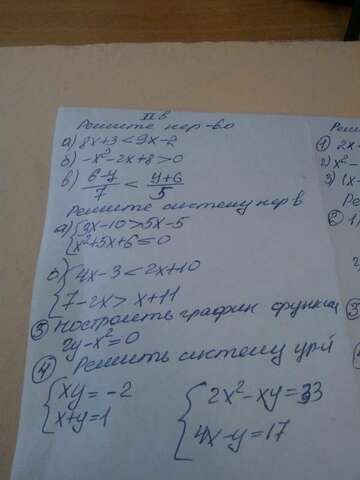 II в
Решите нер-во
а) 8x+3<9x-2
б) -x²-2x+8>0
в) 6-y/7 < y+6/5
Решите систему нер в
а) {3x-10>5x-5
x²+5x+6=0
б) {4x-3<2x+10
7-2x>x+11
③ Построить график функции
2y-x²=0
④ Решить систему ур-й
{xy=-2
x+y=1
{2x²-xy=33
4x-y=17
Реши
① 2x
2) x²-
3) (x-
Ре
② 1)
2
③